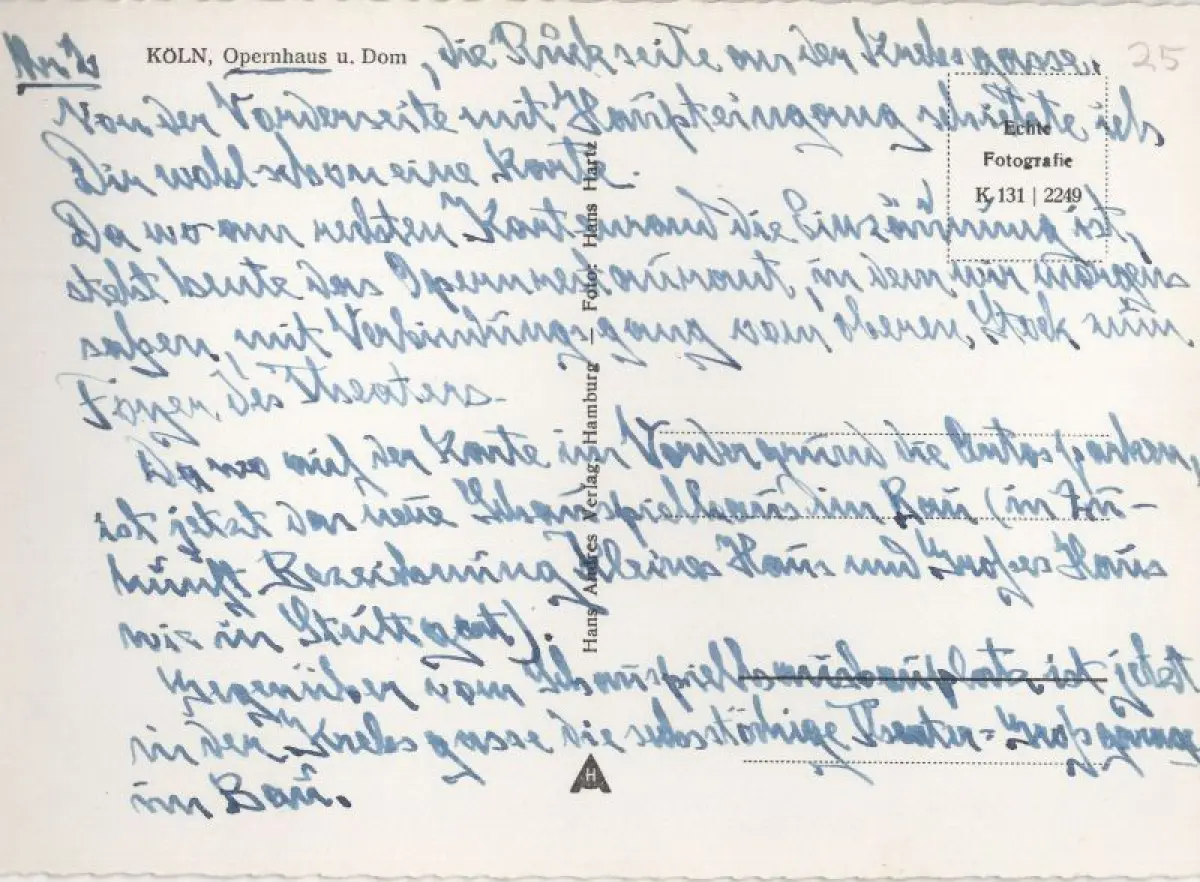 Nr. 2
KÖLN, Opernhaus u. Dom , die Rückseite an der Krebsgasse.
25
Von der Vorderseite mit Haupteingang schickte ich
Dir wohl schon eine Karte.
Da wo am rechten Kartenrand die Einzäunung ist,
steht heute das Opernrestaurant, in dem wir
saßen, mit Verbindungsgang vom oberen Stock zum
Foyer des Theaters.
Da wo auf der Karte im Vordergrund die Autos parken,
ist jetzt das neue Schauspielhaus im Bau (in Zu-
kunft Bezeichnung Kleines Haus und Großes Haus
wie in Stuttgart).
Gegenüber vom Schauspielhausbauplatz ist jetzt
in der Krebsgasse die sechsstöckige Theater-Großgarage
im Bau.
Echte
Fotografie
K 131 | 2249
Hans Andres Verlag, Hamburg — Foto: Hans Hartz
H